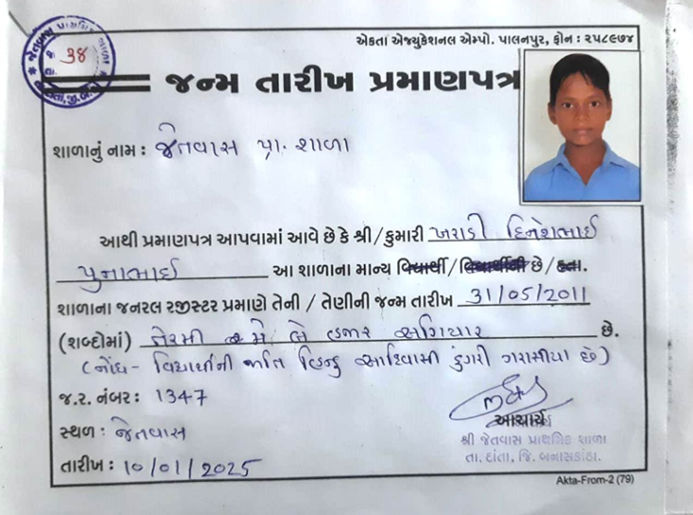 એકતા એજ્યુકેશનલ એમ્પો. પાલનપુર, ફોન : ૨૫૮૯૭૪
૩૪
જન્મ તારીખ પ્રમાણપત્ર
શાળાનું નામ : જેતવાસ પ્રા. શાળા
આથી પ્રમાણપત્ર આપવામાં આવે છે કે શ્રી / કુમારી ખરાડી દિનેશભાઈ
પુનાભાઈ આ શાળાના માન્ય વિદ્યાર્થી / વિદ્યાર્થીની છે / હતા.
શાળાના જનરલ રજીસ્ટર પ્રમાણે તેની / તેણીની જન્મ તારીખ 31/05/2011
(શબ્દોમાં) મે બે હજાર અગિયાર છે.
(નોંધ - વિદ્યાર્થીની જાતિ હિન્દુ આદિવાસી ડુંગરી ગરાસીયા છે)
જ.ર. નંબર : 1347
સ્થળ : જેતવાસ
તારીખ : 10/01/2025
આચાર્ય
શ્રી જેતવાસ પ્રાથમિક શાળા
તા. દાંતા, જિ. બનાસકાંઠા.
Akta-From-2 (79)